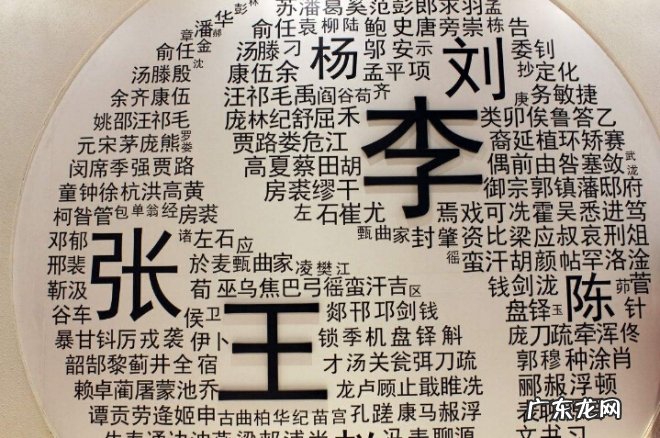 苏潘葛奚范彭郎求羽孟
彭林
潘华
章
俞任金
俞任袁柳陆鲍史唐旁崇栋告
沈
汤滕殷
汤滕刁
杨
邬安示
刘
委钊
康伍余
孟平项
抄定化
余齐康伍
汪祁毛禹阎谷荀齐
庚务敏捷
姚邵汪祁毛
庞林纪舒屈禾
李
类卯俟鲁答乙
元宋茅庞熊罗娄
贾路娄危江
裔延植环矫赛
闵席季强贾路
高夏蔡田胡
偶前由昝塞敛武泷
童钟徐杭洪高黄
房裘缪干
御宗郭镇藩邸府
柯昝管包单翁经房裘
左石崔尤
焉戏可冼霍吴悉进笃
邓郁
张
诸左石应
甄曲家封肇资比梁应赦哀刑俎
邢裴
於麦甄曲家凌樊江
徭蛮汗胡颜帖罕洛淦
靳汲
荀巫乌焦巴弓徭蛮汗吉区
钱剑泷
陈
茆菅
谷车
侯卫
王
郯邗邛剑钱
盘铎玉
针
暴甘钭厉戎袭伊卜
锁季机盘铎斛
庞刀疏牵浑佟
韶郜黎蓟井全宿
才汤关瓮弭刀疏
郭穆种涂肖
赖卓蔺屠蒙池乔
龙卢顾止戢睢冼
郦郝浮顿
谭贡劳逄姬申古曲柏华纪苗宫孔蹉康马郝浮